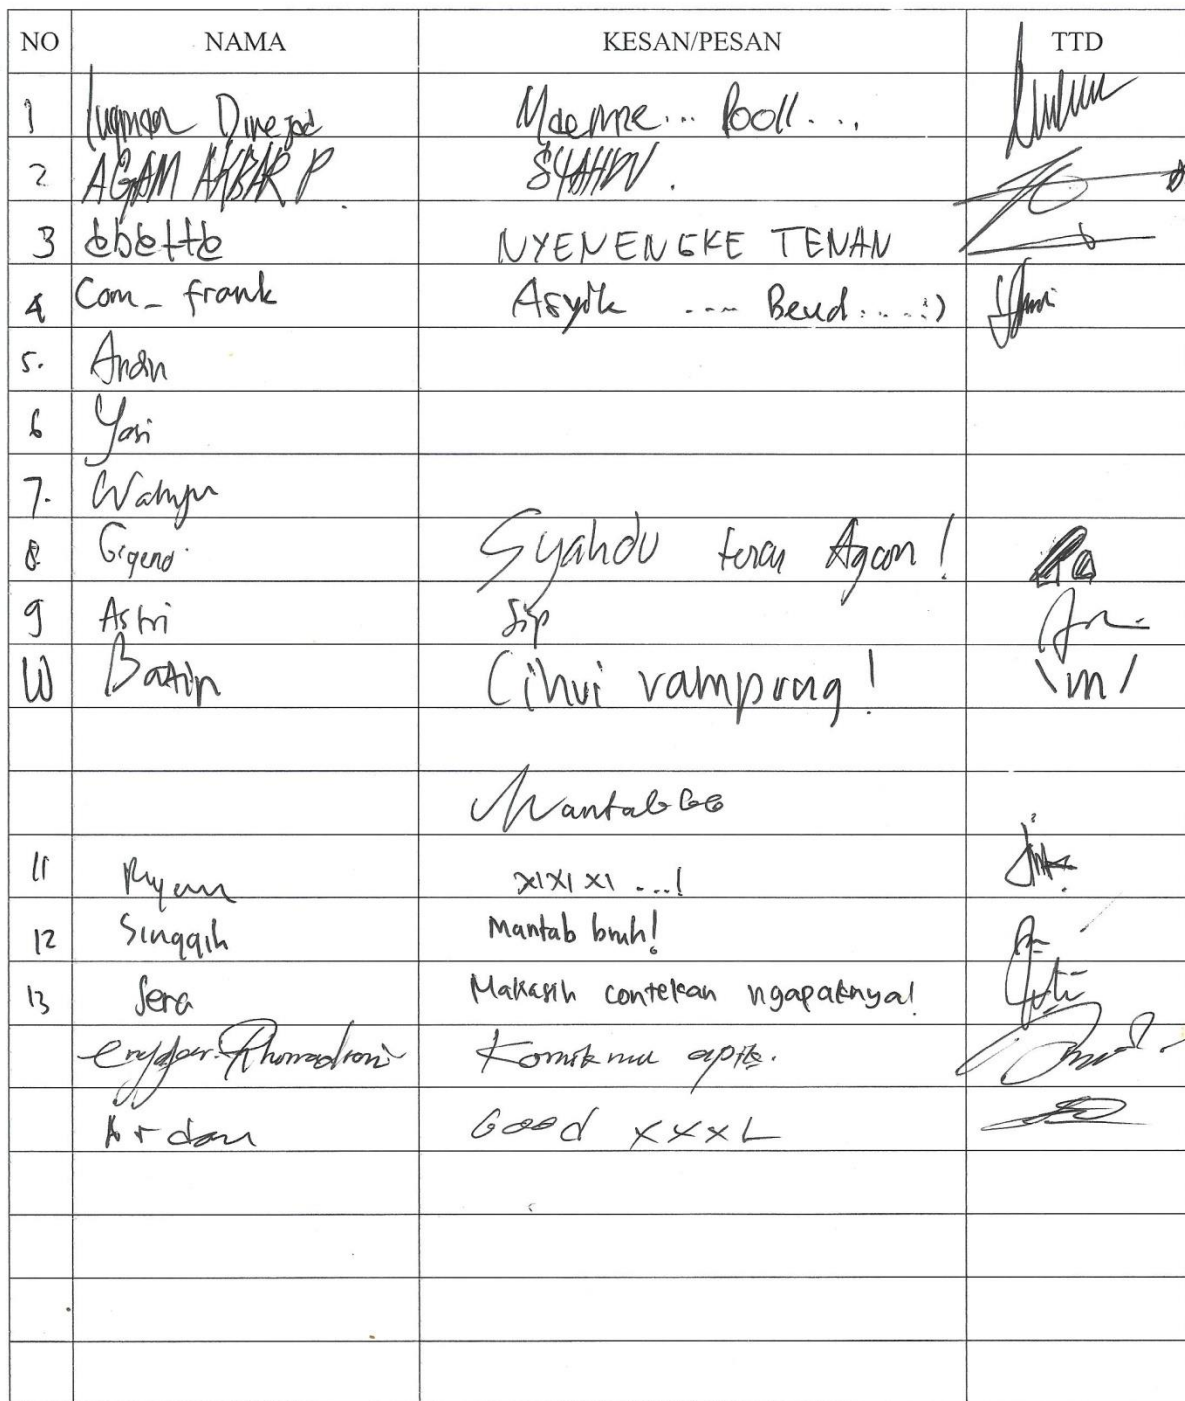 NO NAMA KESAN/PESAN TTD
1 Luqman Maenne... Pooll...
2 AGAM AKBAR P. SYAHDU.
3 ebette NYENENGKE TENAN
4 Com_ frank Asyik .... Beud....:)
5. Andin
6 Yosi
7. Wahyu
8. Syahdu Agam!
9 Astri Sip
10 Batin Cihui rampung!
Mantabbb
11 Ryan XIXIXI ...!
12 Singgih Mantab bruh!
13 Sera Makasih contekan ngapaknya!
Komikmu apik.
Ardan Good XXXL